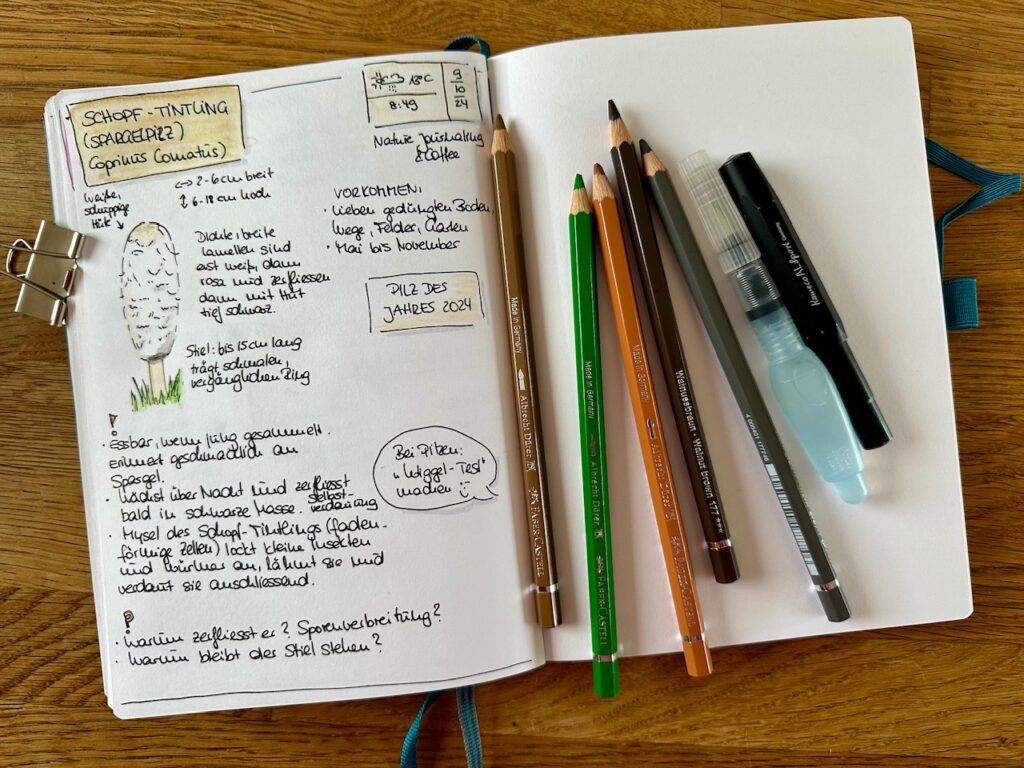 SCHOPF-TINTLING
(SPARGELPILZ)
Coprinus Comatus)
13°C
8:49
9
10
24
Nature Journaling
& Coffee
weiße,
schuppige
Hüte
↔ 2-6cm breit
↕ 6-18 cm hoch
Dichte breite
Lamellen sind
erst weiß, dann
rosa und zerfliessen
dann mit Hut
tief schwarz.
Stiel: bis 15cm lang
trägt schmalen,
vergänglichen Ring
VORKOMMEN:
· Lieben gedüngten Boden,
Wege, Felder, Gärten
· Mai bis November
PILZ DES
JAHRES 2024
!
· Essbar, wenn jung gesammelt.
Erinnert geschmacklich an
Spargel.
· Wächst über Nacht und zerfliesst
bald in schwarze Masse. Selbst-
verdauung
· Mysel des Schopf-Tintlings (faden-
förmige Zellen) lockt kleine Insekten
und Würmer an, lähmt sie und
verdaut sie anschliessend.
Bei Pilzen:
"Wiggel-Test"
machen
?
· Warum zerfliesst er? Sporenverbreitung?
· Warum bleibt der Stiel stehen?
Made in Germany
Albrecht Dürer
FABER-CASTELL
Made in Germany
Albrecht Dürer
FABER-CASTELL
Made in Germany
Albrecht Dürer
FABER-CASTELL
Walnussbraun · Walnut brown 177 ***
Kaweco AL Sport